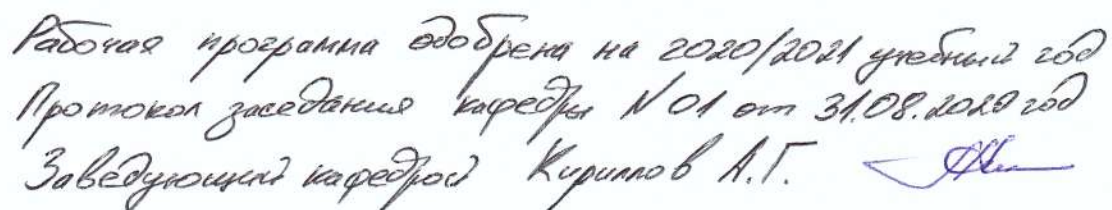 Рабочая программа одобрена на 2020/2021 учебный год
Протокол заседания кафедры №01 от 31.08.2020 год
Заведующий кафедрой Кириллов А.Г.